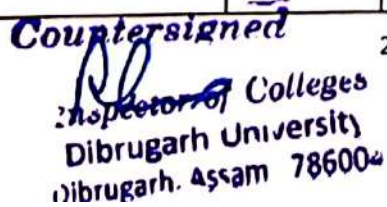 Countersigned
Inspector of Colleges
Dibrugarh University
Dibrugarh. Assam 786004